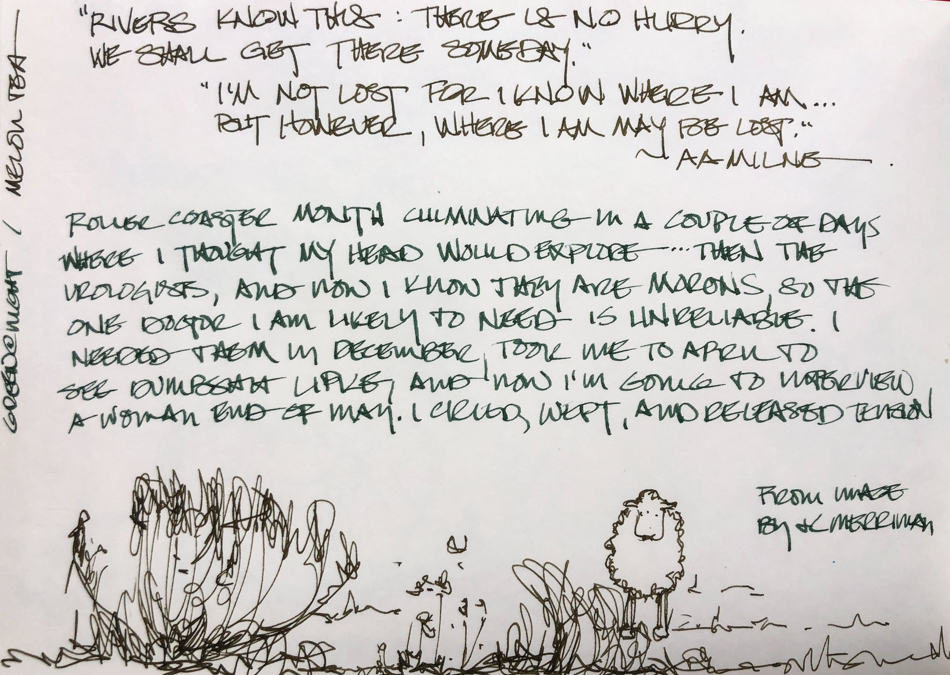 "RIVERS KNOW THIS: THERE IS NO HURRY.
WE SHALL GET THERE SOMEDAY."
"I'M NOT LOST FOR I KNOW WHERE I AM...
BUT HOWEVER, WHERE I AM MAY BE LOST."
~ AA MILNE
ROLLER COASTER MONTH CULMINATING IN A COUPLE OF DAYS
WHERE I THOUGHT MY HEAD WOULD EXPLODE ... THEN THE
UROLOGISTS, AND NOW I KNOW THEY ARE MORONS, SO THE
ONE DOCTOR I AM LIKELY TO NEED IS UNRELIABLE. I
NEEDED THEM IN DECEMBER, TOOK ME TO APRIL TO
SEE AND NOW I'M GOING TO INTERVIEW
A WOMAN END OF MAY. I CRIED, WEPT, AND RELEASED TENSION
FROM IMAGE
BY MERRIMAN
/ MELON TEA